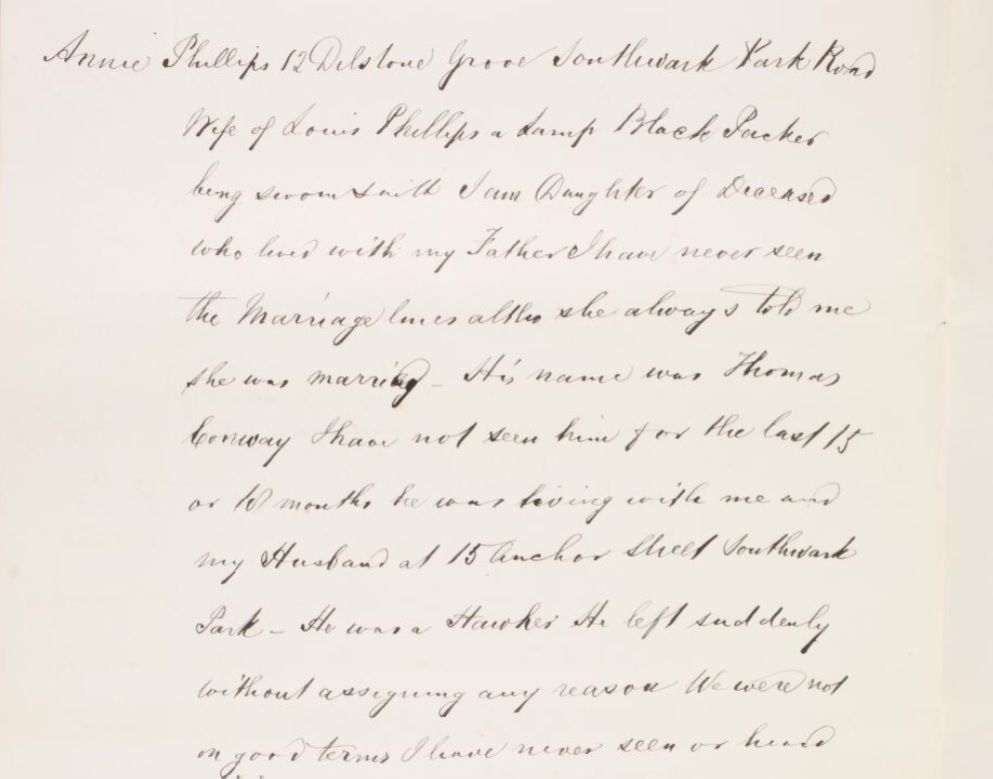 Annie Phillips 12 Dilstone Grove Southwark Park Road
Wife of Louis Phillips a Lamp Black Packer
being sworn saith I am Daughter of Deceased
who lived with my Father I have never seen
the Marriage lines altho she always told me
she was married - His name was Thomas
Conway I have not seen him for the last 15
or 18 months he was living with me and
my Husband at 15 Anchor Street Southwark
Park - He was a Hawker He left suddenly
without assigning any reason We were not
on good terms I have never seen or heard